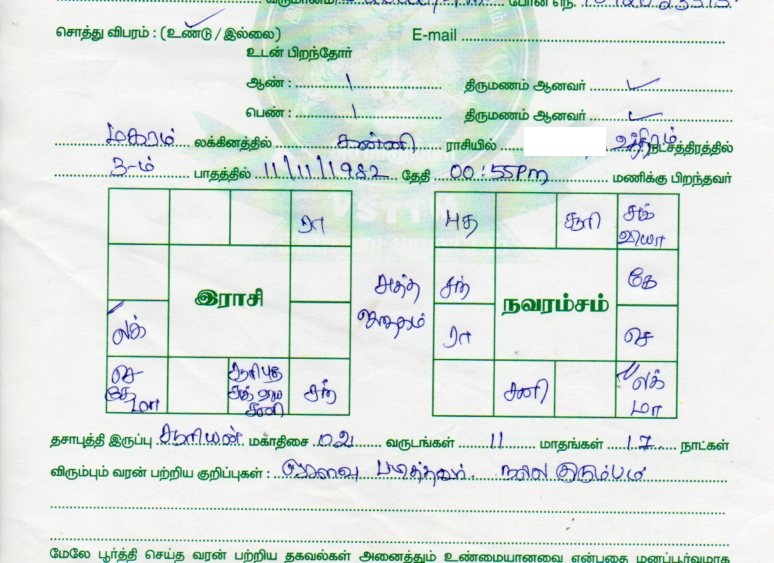 சொத்து விபரம் : (உண்டு / இல்லை) E-mail
உடன் பிறந்தோர்
ஆண் : 1 திருமணம் ஆனவர் ✓
பெண் : 1 திருமணம் ஆனவர் ✓
மகரம் லக்கினத்தில் கன்னி ராசியில் உத்திரம் நட்சத்திரத்தில்
3-ம் பாதத்தில் 11/11/1982 தேதி 00:55Pm மணிக்கு பிறந்தவர்
ரா
புத சூரி சுக் வியா
இராசி
சந் நவரம்சம் கே
லக் ரா செ
செ கே மா சூரி புத சுக் வியா சனி சந் சனி லக் மா
தசாபுத்தி இருப்பு சூரியன் மகாதிசை 02 வருடங்கள் 11 மாதங்கள் 17 நாட்கள்
விரும்பும் வரன் பற்றிய குறிப்புகள் : குடும்பம்
மேலே பூர்த்தி செய்த வரன் பற்றிய தகவல்கள் அனைத்தும் உண்மையானவை என்பதை மனப்பூர்வமாக